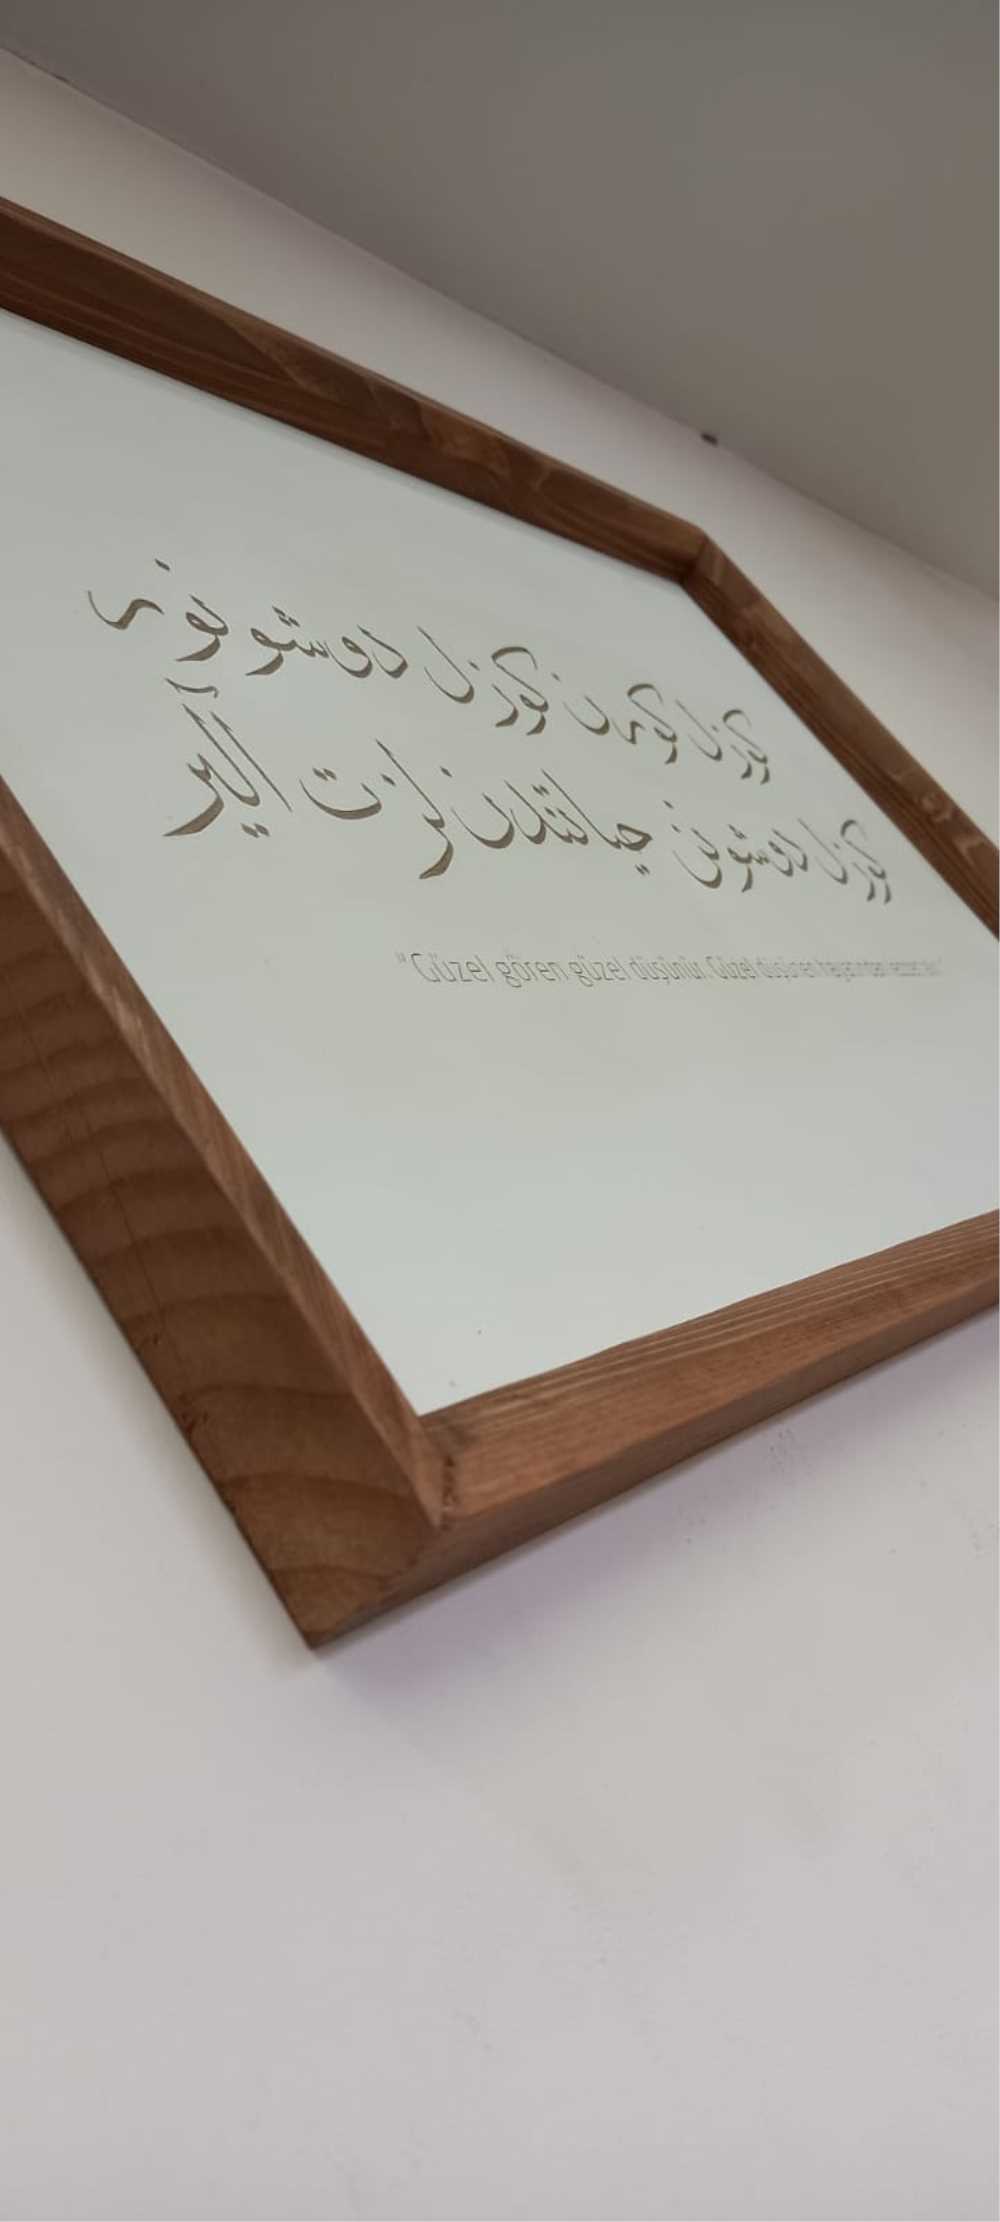 كوزل كورن كوزل دوشونور
كوزل دوشونن حياتندن لذت آلير
"Güzel gören güzel düşünür. Güzel düşünen hayatından lezzet alır."